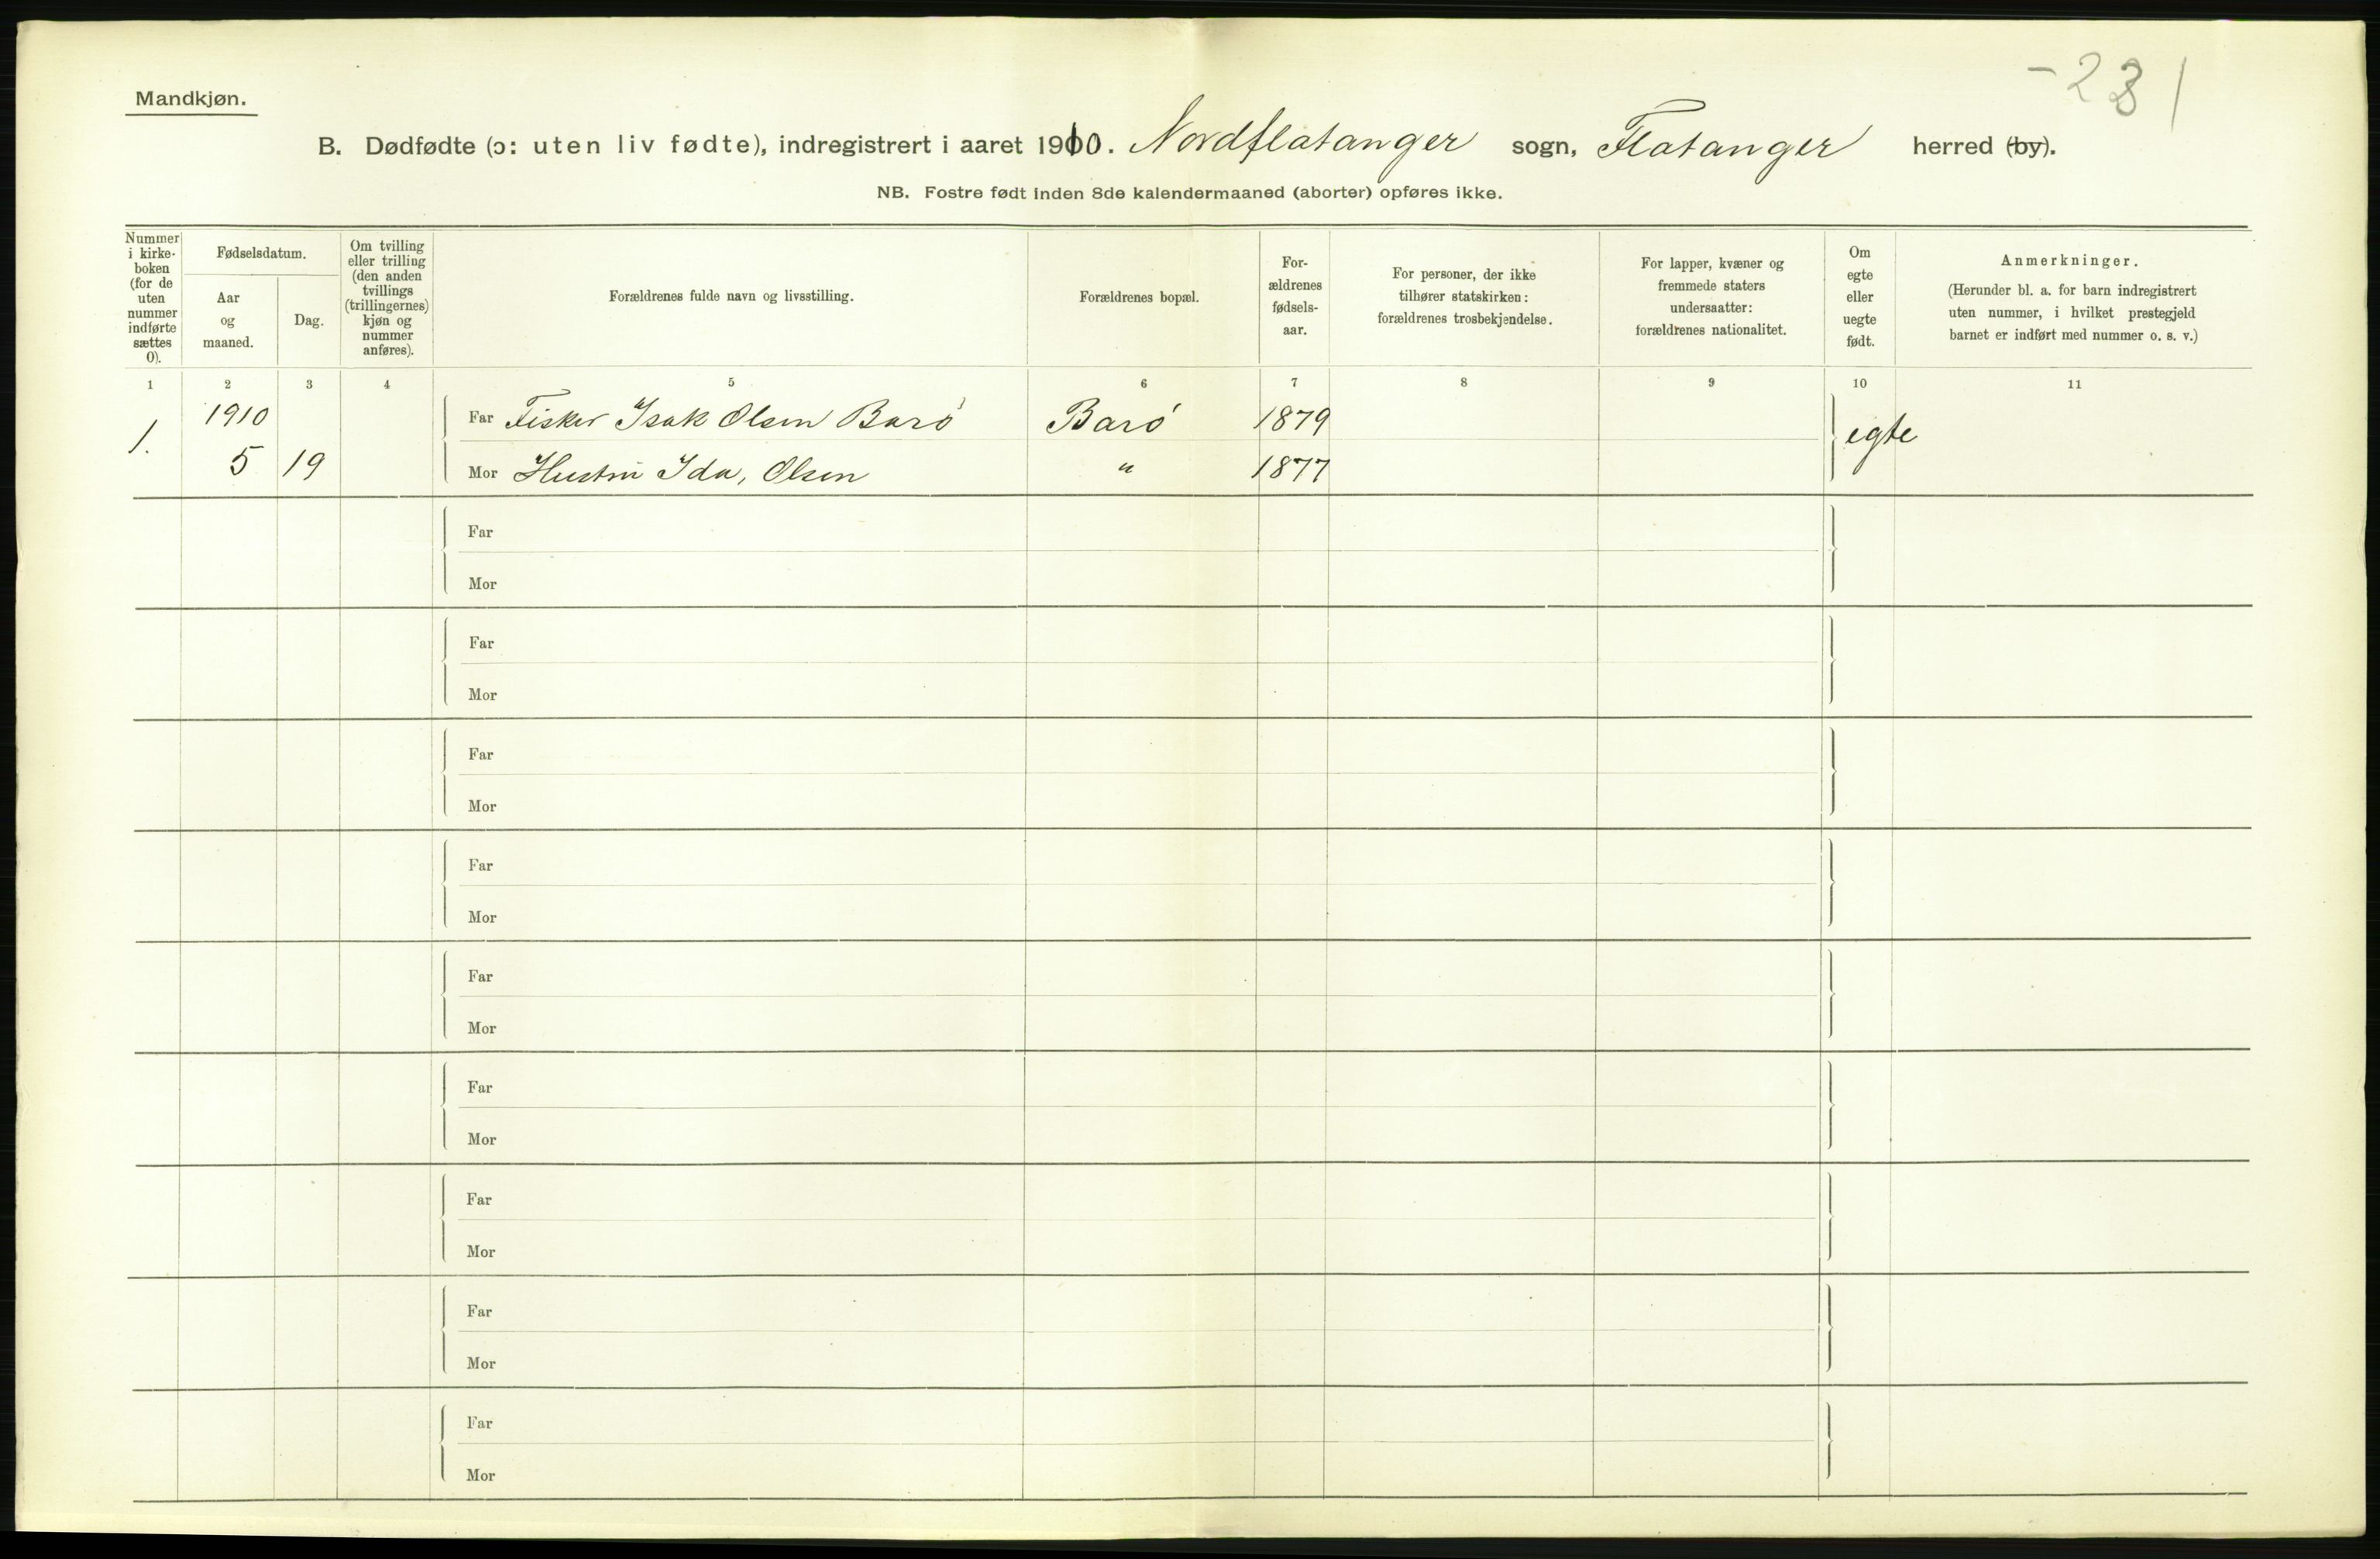 - 23 1
Mandkjøn.
B. Dødfødte (ɔ: uten liv fødte), indregistrert i aaret 1910. Nordflatanger sogn, Flatanger herred (by).
NB. Fostre født inden 8de kalendermaaned (aborter) opføres ikke.
Nummer
i kirke-
boken
(for de
uten
nummer
indførte
sættes
0).
Fødselsdatum.
Aar
og
maaned.
Dag.
Om tvilling
eller trilling
(den anden
tvillings
(trillingernes)
kjøn og
nummer
anføres).
Forældrenes fulde navn og livsstilling.
Forældrenes bopæl.
For-
ældrenes
fødsels-
aar.
For personer, der ikke
tilhører statskirken:
forældrenes trosbekjendelse.
For lapper, kvæner og
fremmede staters
undersaatter:
forældrenes nationalitet.
Om
egte
eller
uegte
født.
Anmerkninger.
(Herunder bl. a. for barn indregistrert
uten nummer, i hvilket prestegjeld
barnet er indført med nummer o. s. v.)
1 2 3 4 5 6 7 8 9 10 11
1. 1910 Far Fisker Isak Olsen Barö Barö 1879 egte
5 19 Mor Hustru Ida, Olsen " 1877
Far
Mor
Far
Mor
Far
Mor
Far
Mor
Far
Mor
Far
Mor
Far
Mor
Far
Mor
Far
Mor